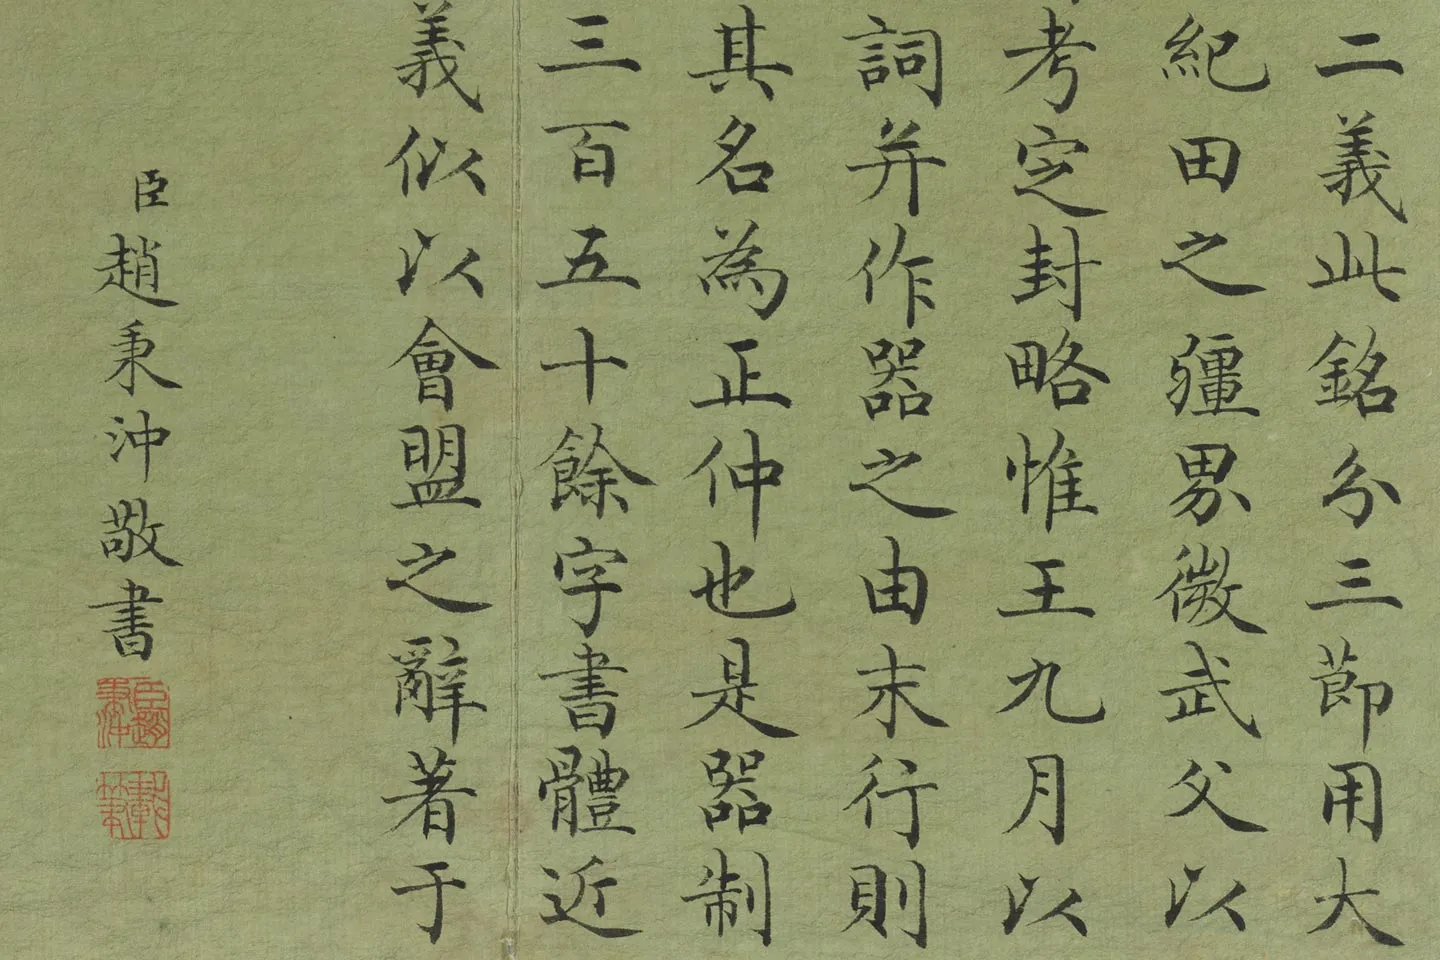 二義此銘分三節用大
紀田之疆界微武父以
考定封略惟王九月以
詞并作器之由末行則
其名為正仲也是器制
三百五十餘字書體近
義似以會盟之辭著于
臣趙秉沖敬書
臣趙秉沖